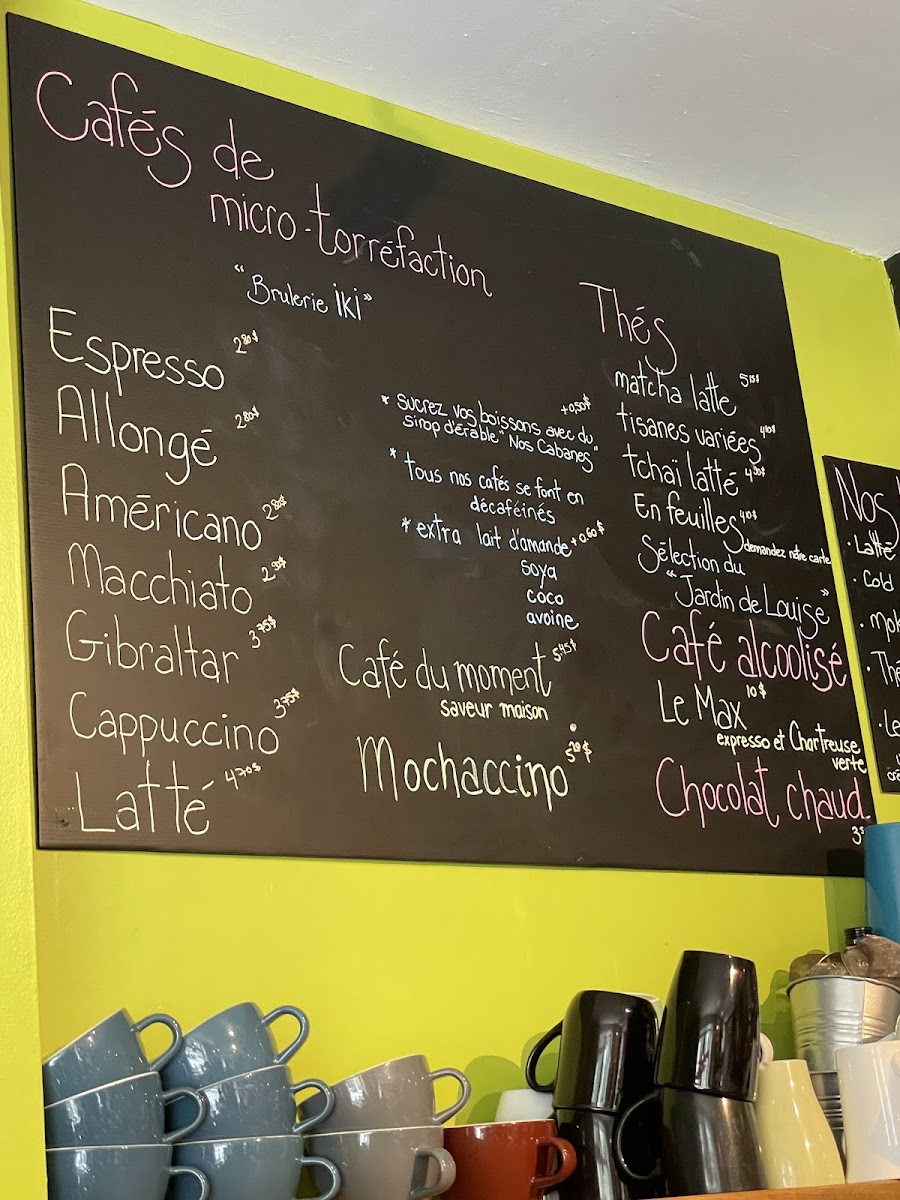 Cafés de
micro-torréfaction
"Brulerie iki"
Espresso 2.80$
Allongé 2.80$
Américano 2.80$
Macchiato 2.90$
Gibraltar 3.75$
Cappuccino 3.75$
Latté 4.70$
* sucrez vos boissons avec du +0,50$
sirop d'érable "Nos Cabanes"
* tous nos cafés se font en
décaféinés
* extra lait d'amande +0.60$
soya
coco
avoine
Café du moment 5.45$
saveur maison
Mochaccino 5.20$
Thés
matcha latte 5.15$
tisanes variées 4.10$
tchaï latté
En feuilles 4.10$
demandez nôtre carte
Sélection du
"Jardin de Louise"
Café alcoolisé
Le Max 10$
expresso et Chartreuse
verte
Chocolat chaud
Nos
• Latté
• Cold